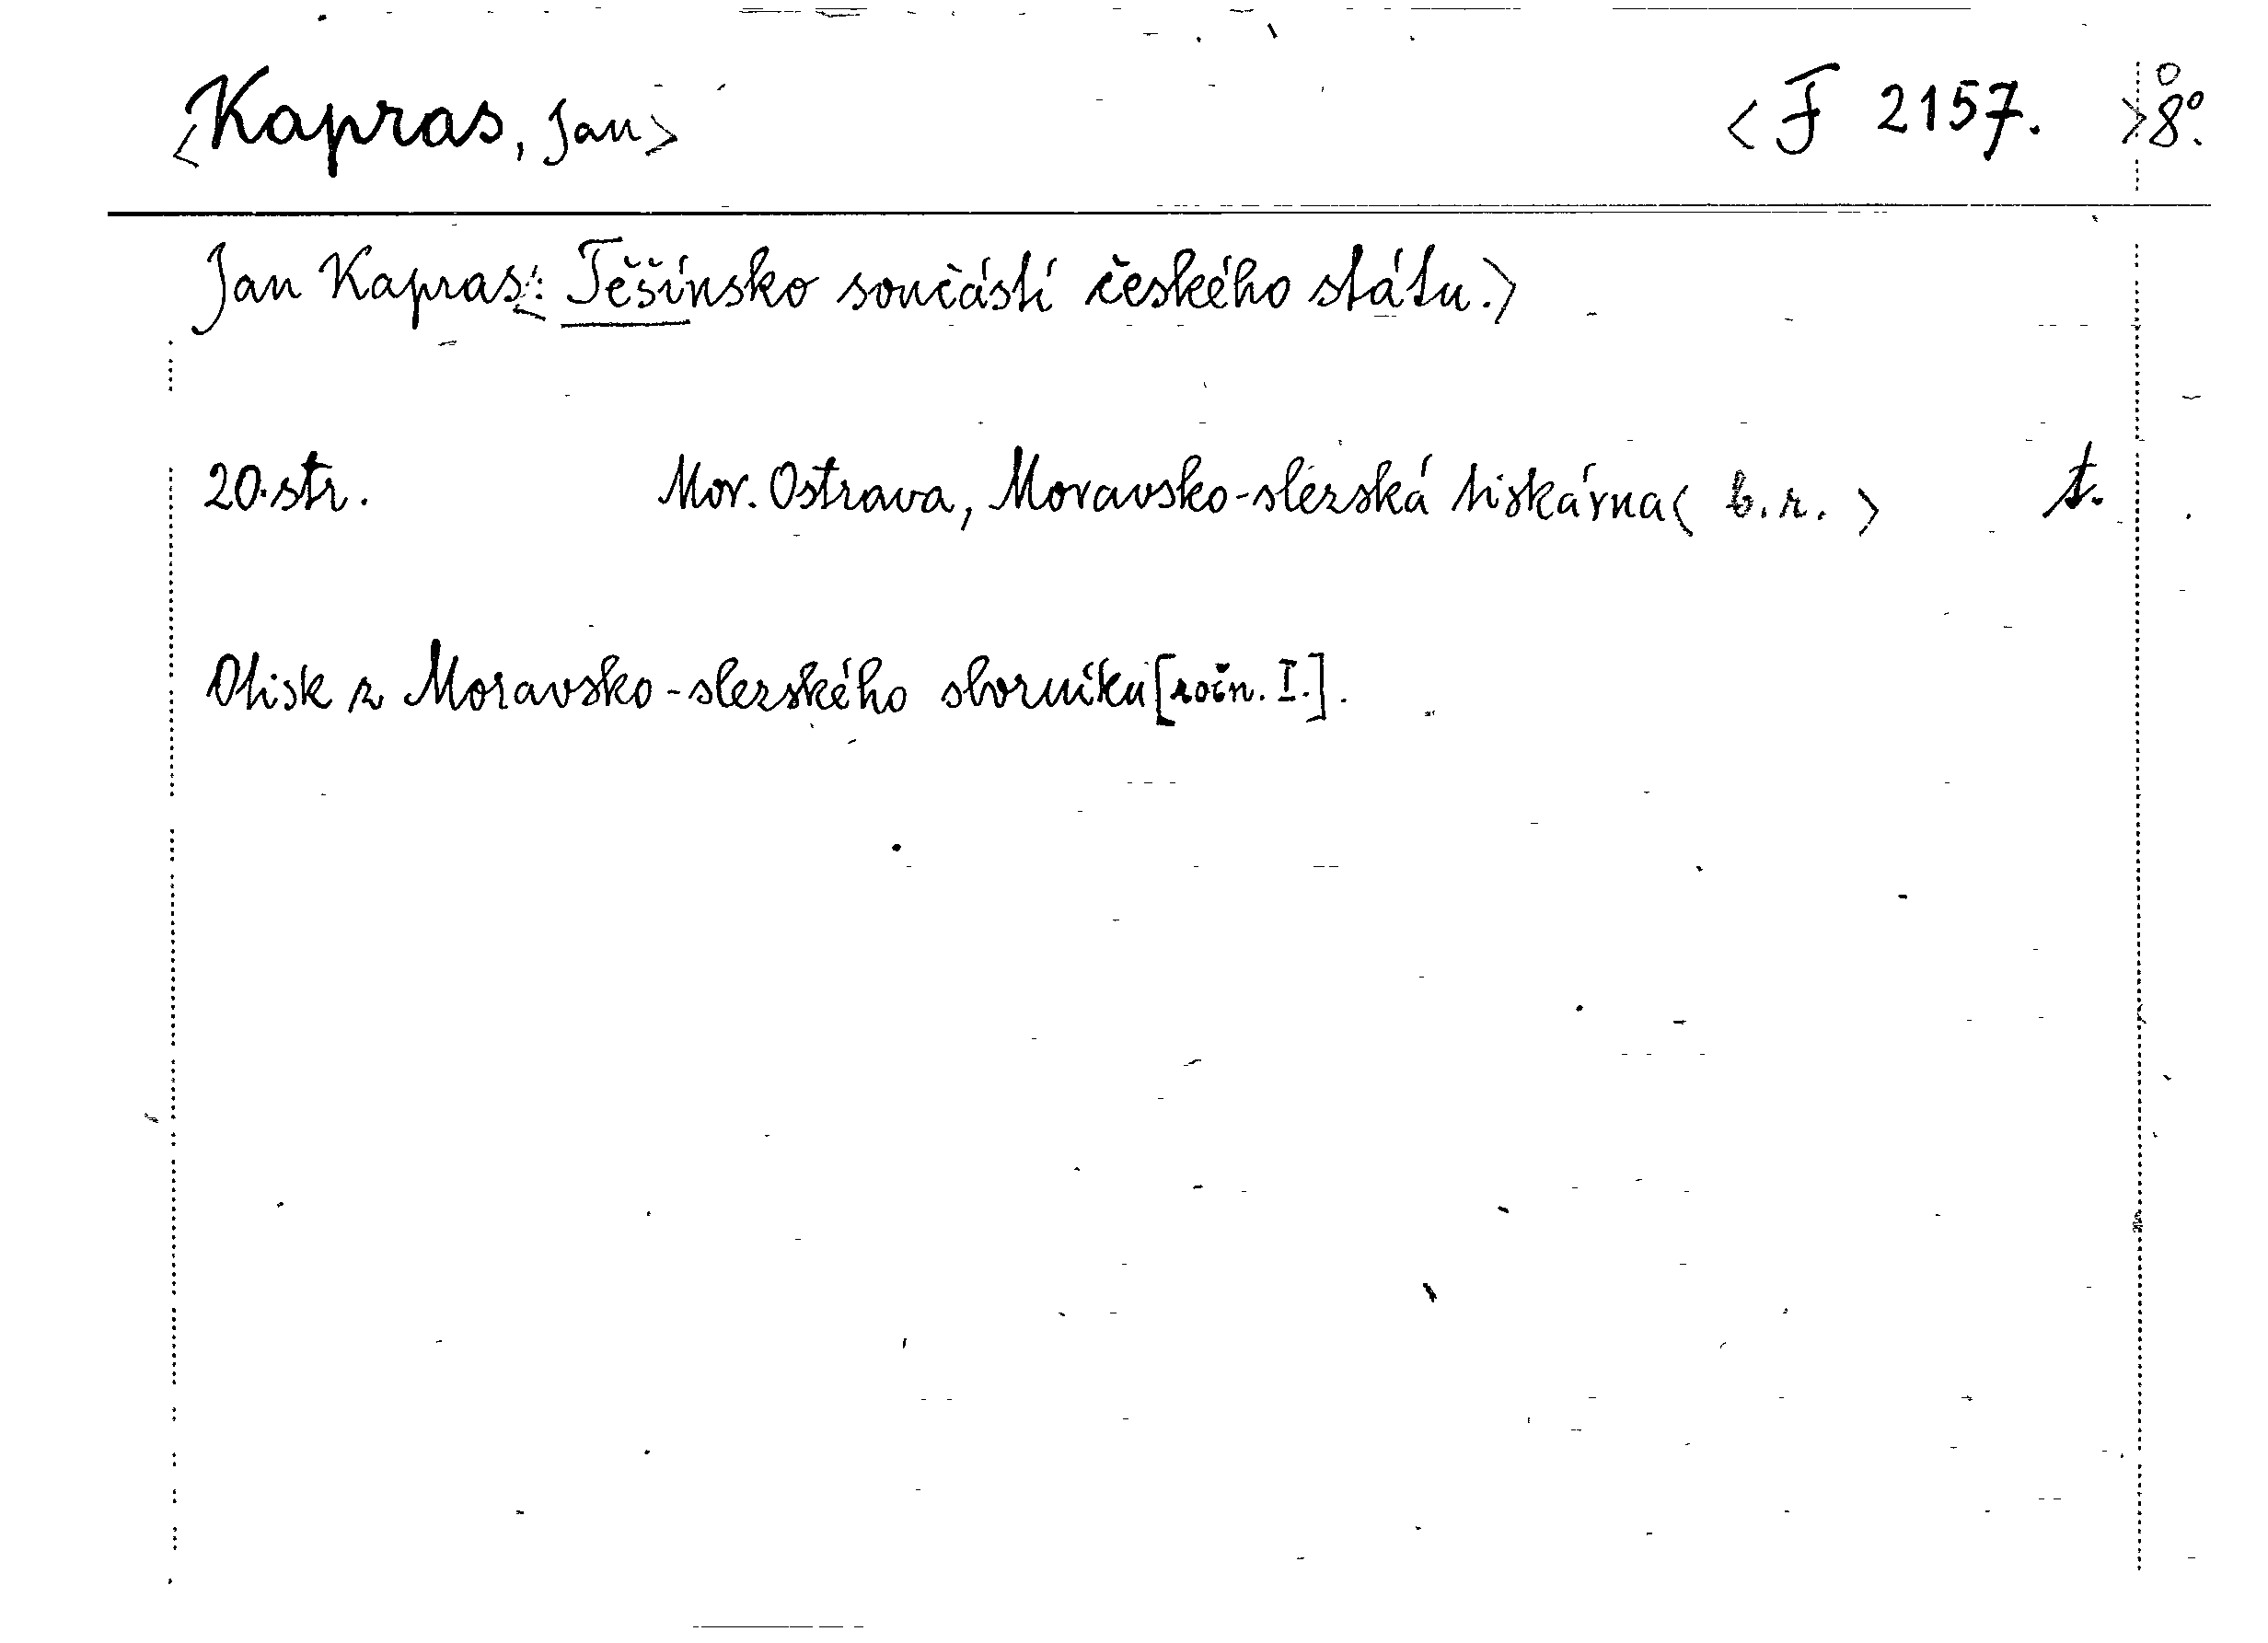 <Kapras, Jan> <F 2157. >8°.
Jan Kapras:< Těšínsko součástí českého státu.>
20 str. Mor. Ostrava, Moravsko-slezská tiskárna< b.r. > t.
Otisk z Moravsko-slezského sborníku [ročn. I.].